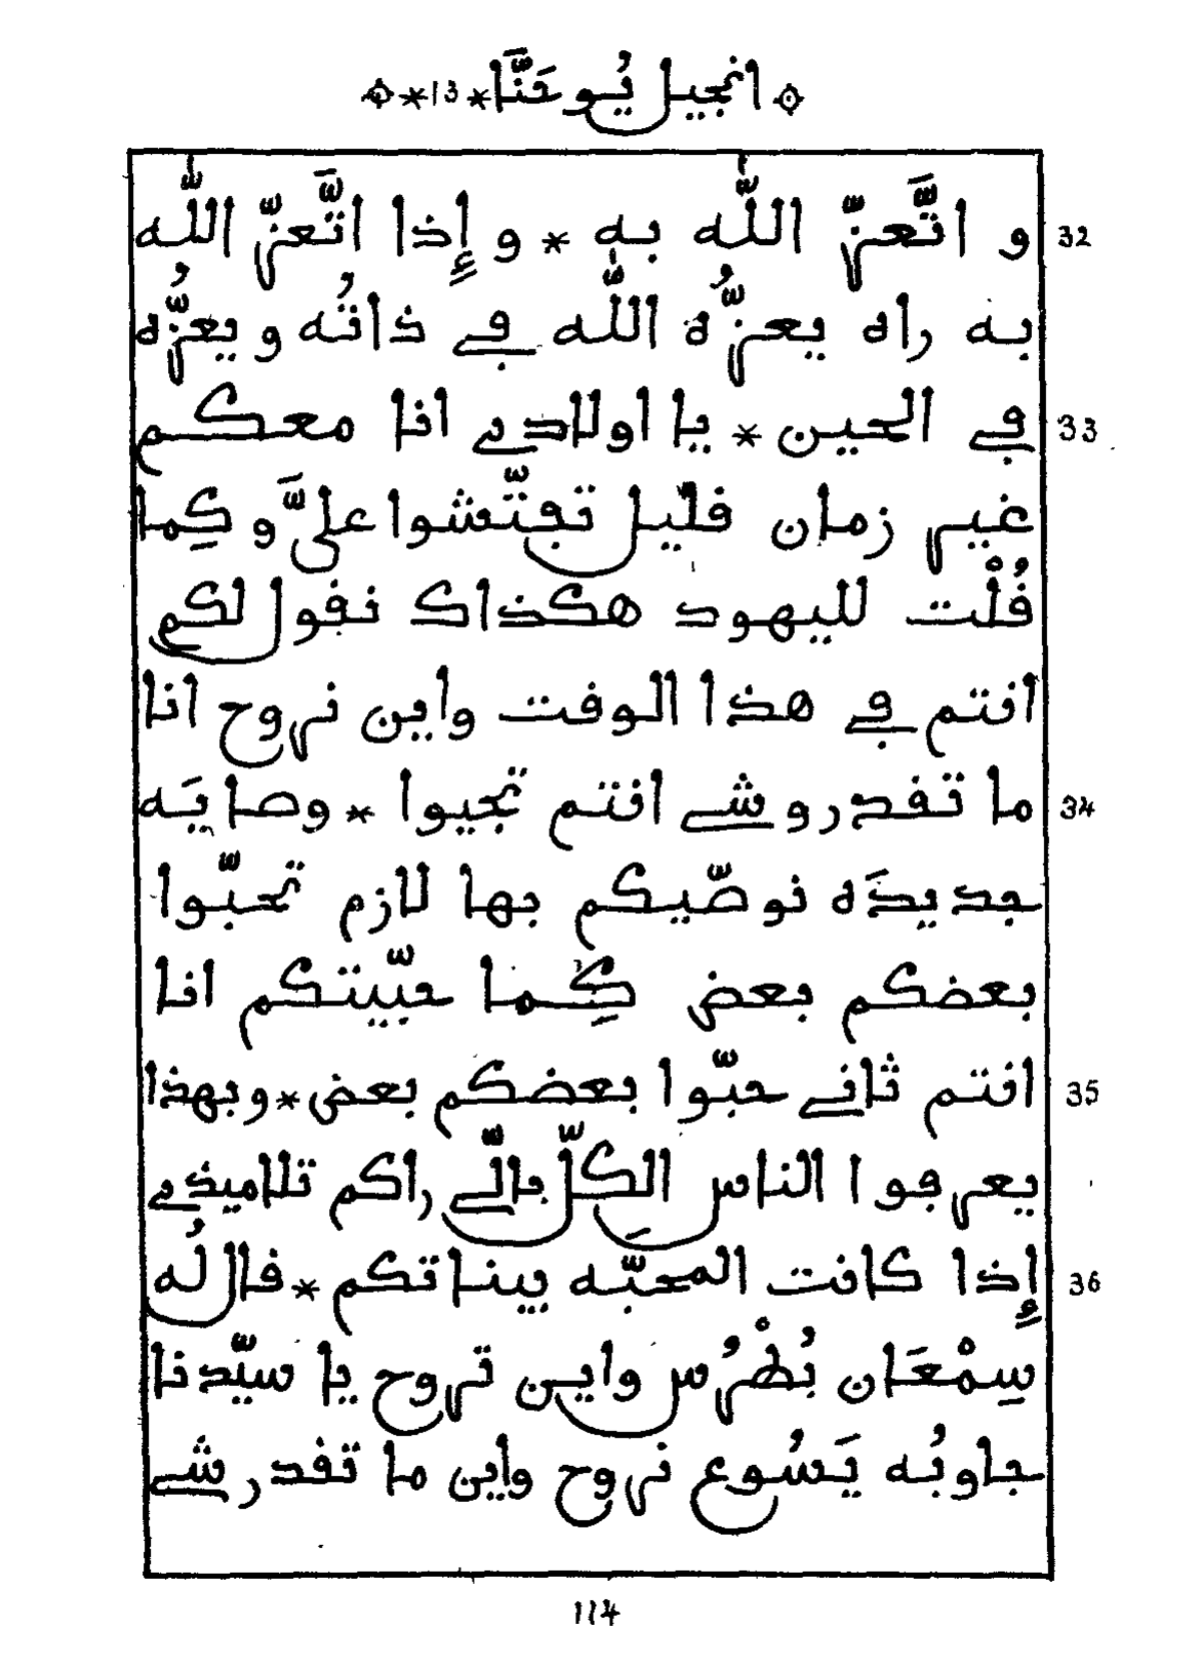 ۞ انجيل يُوحَنَّا *13* ۞
32 و اتَّعزّ اللّٰه به * و إِذا اتَّعزّ اللّٰه
به راه يعزُّه اللّٰه في ذاتُه و يعزُّه
33 في الحين * يا اولادي انا معكم
غير زمان قليل تفتّشوا عليَّ و كِما
قُلْت لليهود هكذاك نقول لكم
انتم في هذا الوقت واين نروح انا
34 ما تقدروشي انتم تجيوا * وصايَه
جديدَه نوصّيكم بها لازم تحبّوا
بعضكم بعض كِما حبّيتكم انا
35 انتم ثاني حبّوا بعضكم بعض * وبهذا
يعرفوا الناس الكلّ بالّي راكم تلاميذي
36 إِذا كانت المحبَّه بيناتكم * قال لُه
سِمْعَان بُطْرُس واين تروح يا سيّدنا
جاوبُه يَسُوع نروح واين ما تقدرشي
114